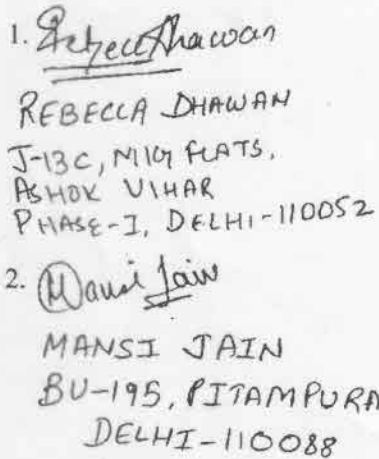 1. Rebecca Dhawan
REBECCA DHAWAN
J-13C, MIG FLATS,
ASHOK VIHAR
PHASE-I, DELHI-110052
2. Mansi Jain
MANSI JAIN
BU-195, PITAMPURA
DELHI-110088